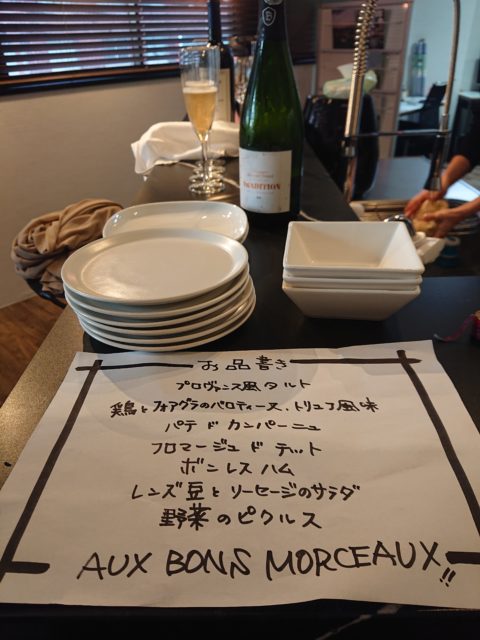 TRADITION
お品書き
プロヴァンス風タルト
鶏とフォアグラのバロティーヌ、トリュフ風味
パテドカンパーニュ
フロマージュドテット
ボンレスハム
レンズ豆とソーセージのサラダ
野菜のピクルス
AUX BONS MORCEAUX!!